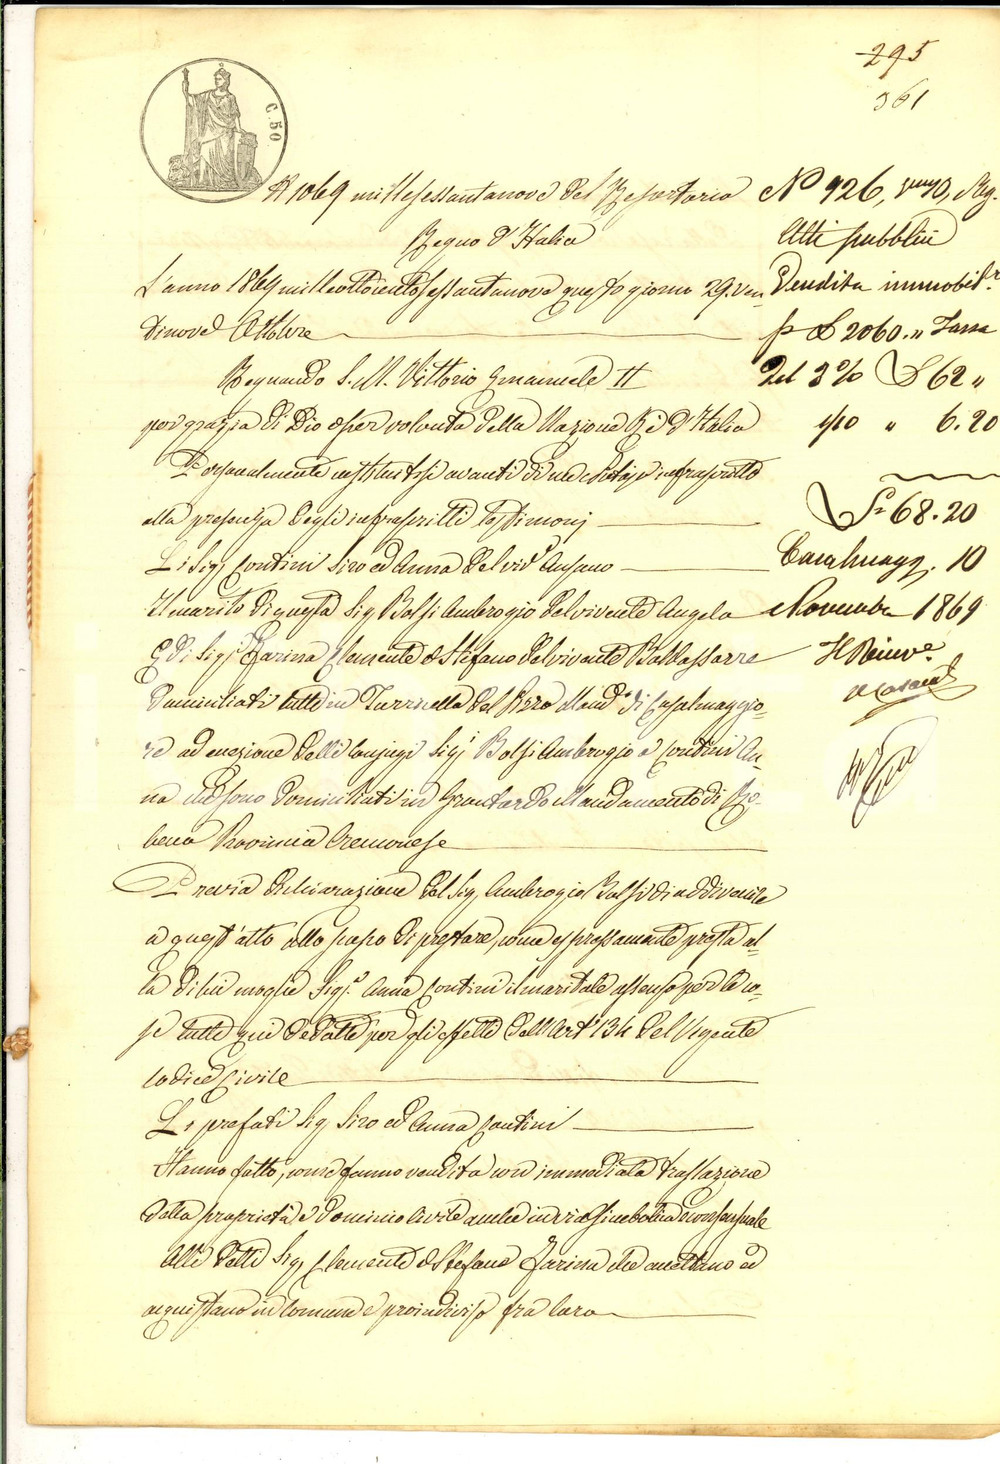 295
361
C. 50
N 1069 millesessantanove del Repertorio
Regno d'Italia
L'anno 1869 milleottocentosessantanove questo giorno 29. ven
dinove Ottobre
Regnando S. M. Vittorio Emanuele II
per grazia di Dio e per volontà della Nazione Re d'Italia
Personalmente costituitisi avanti di me Notajo infrascritto
alla presenza degli infrascritti testimonj
Li Sigj Contini Siro ed Anna del viv.e Ansano
Il marito di questa Sig Bolsi Ambrogio del vivente Angelo
E di Sigj Farina Clemente e Stefano del vivente Baldassarre
domiciliati tutti in Torricella del Pizzo Mand.o di Casalmaggio=
re ad eccezione delli Conjugi Sigj Bolsi Ambrogio e Contini An=
na che sono domiciliati in Grontardo Mandamento di Ro=
becco Provincia Cremonese
Previa dichiarazione del Sig Ambrogio Bolsi di addivenire
a quest'atto allo scopo di prestare, come espressamente presta al=
la di lui moglie Sig.a Anna Contini il maritale assenso per le co=
se tutte qui dedotte per gli effetti dell'Art.o 134 del Vigente
Codice Civile
Li prefati Sig Siro ed Anna Contini
Hanno fatto, come fanno vendita con immediata traslazione
della proprietà e dominio civile anche in via simbolica e consensuale
Alli detti Sig Clemente e Stefano Farina che accettano ed
acquistano in comune e proindiviso fra loro
N° 926, Reg.
Atti pubblici
Vendita immobil.e
p £ 2060. „ Tassa
del 3% £ 62 „
1/10 „ 6. 20
£ 68. 20
Casalmagg. 10
Novembre 1869
Il Ricev.e